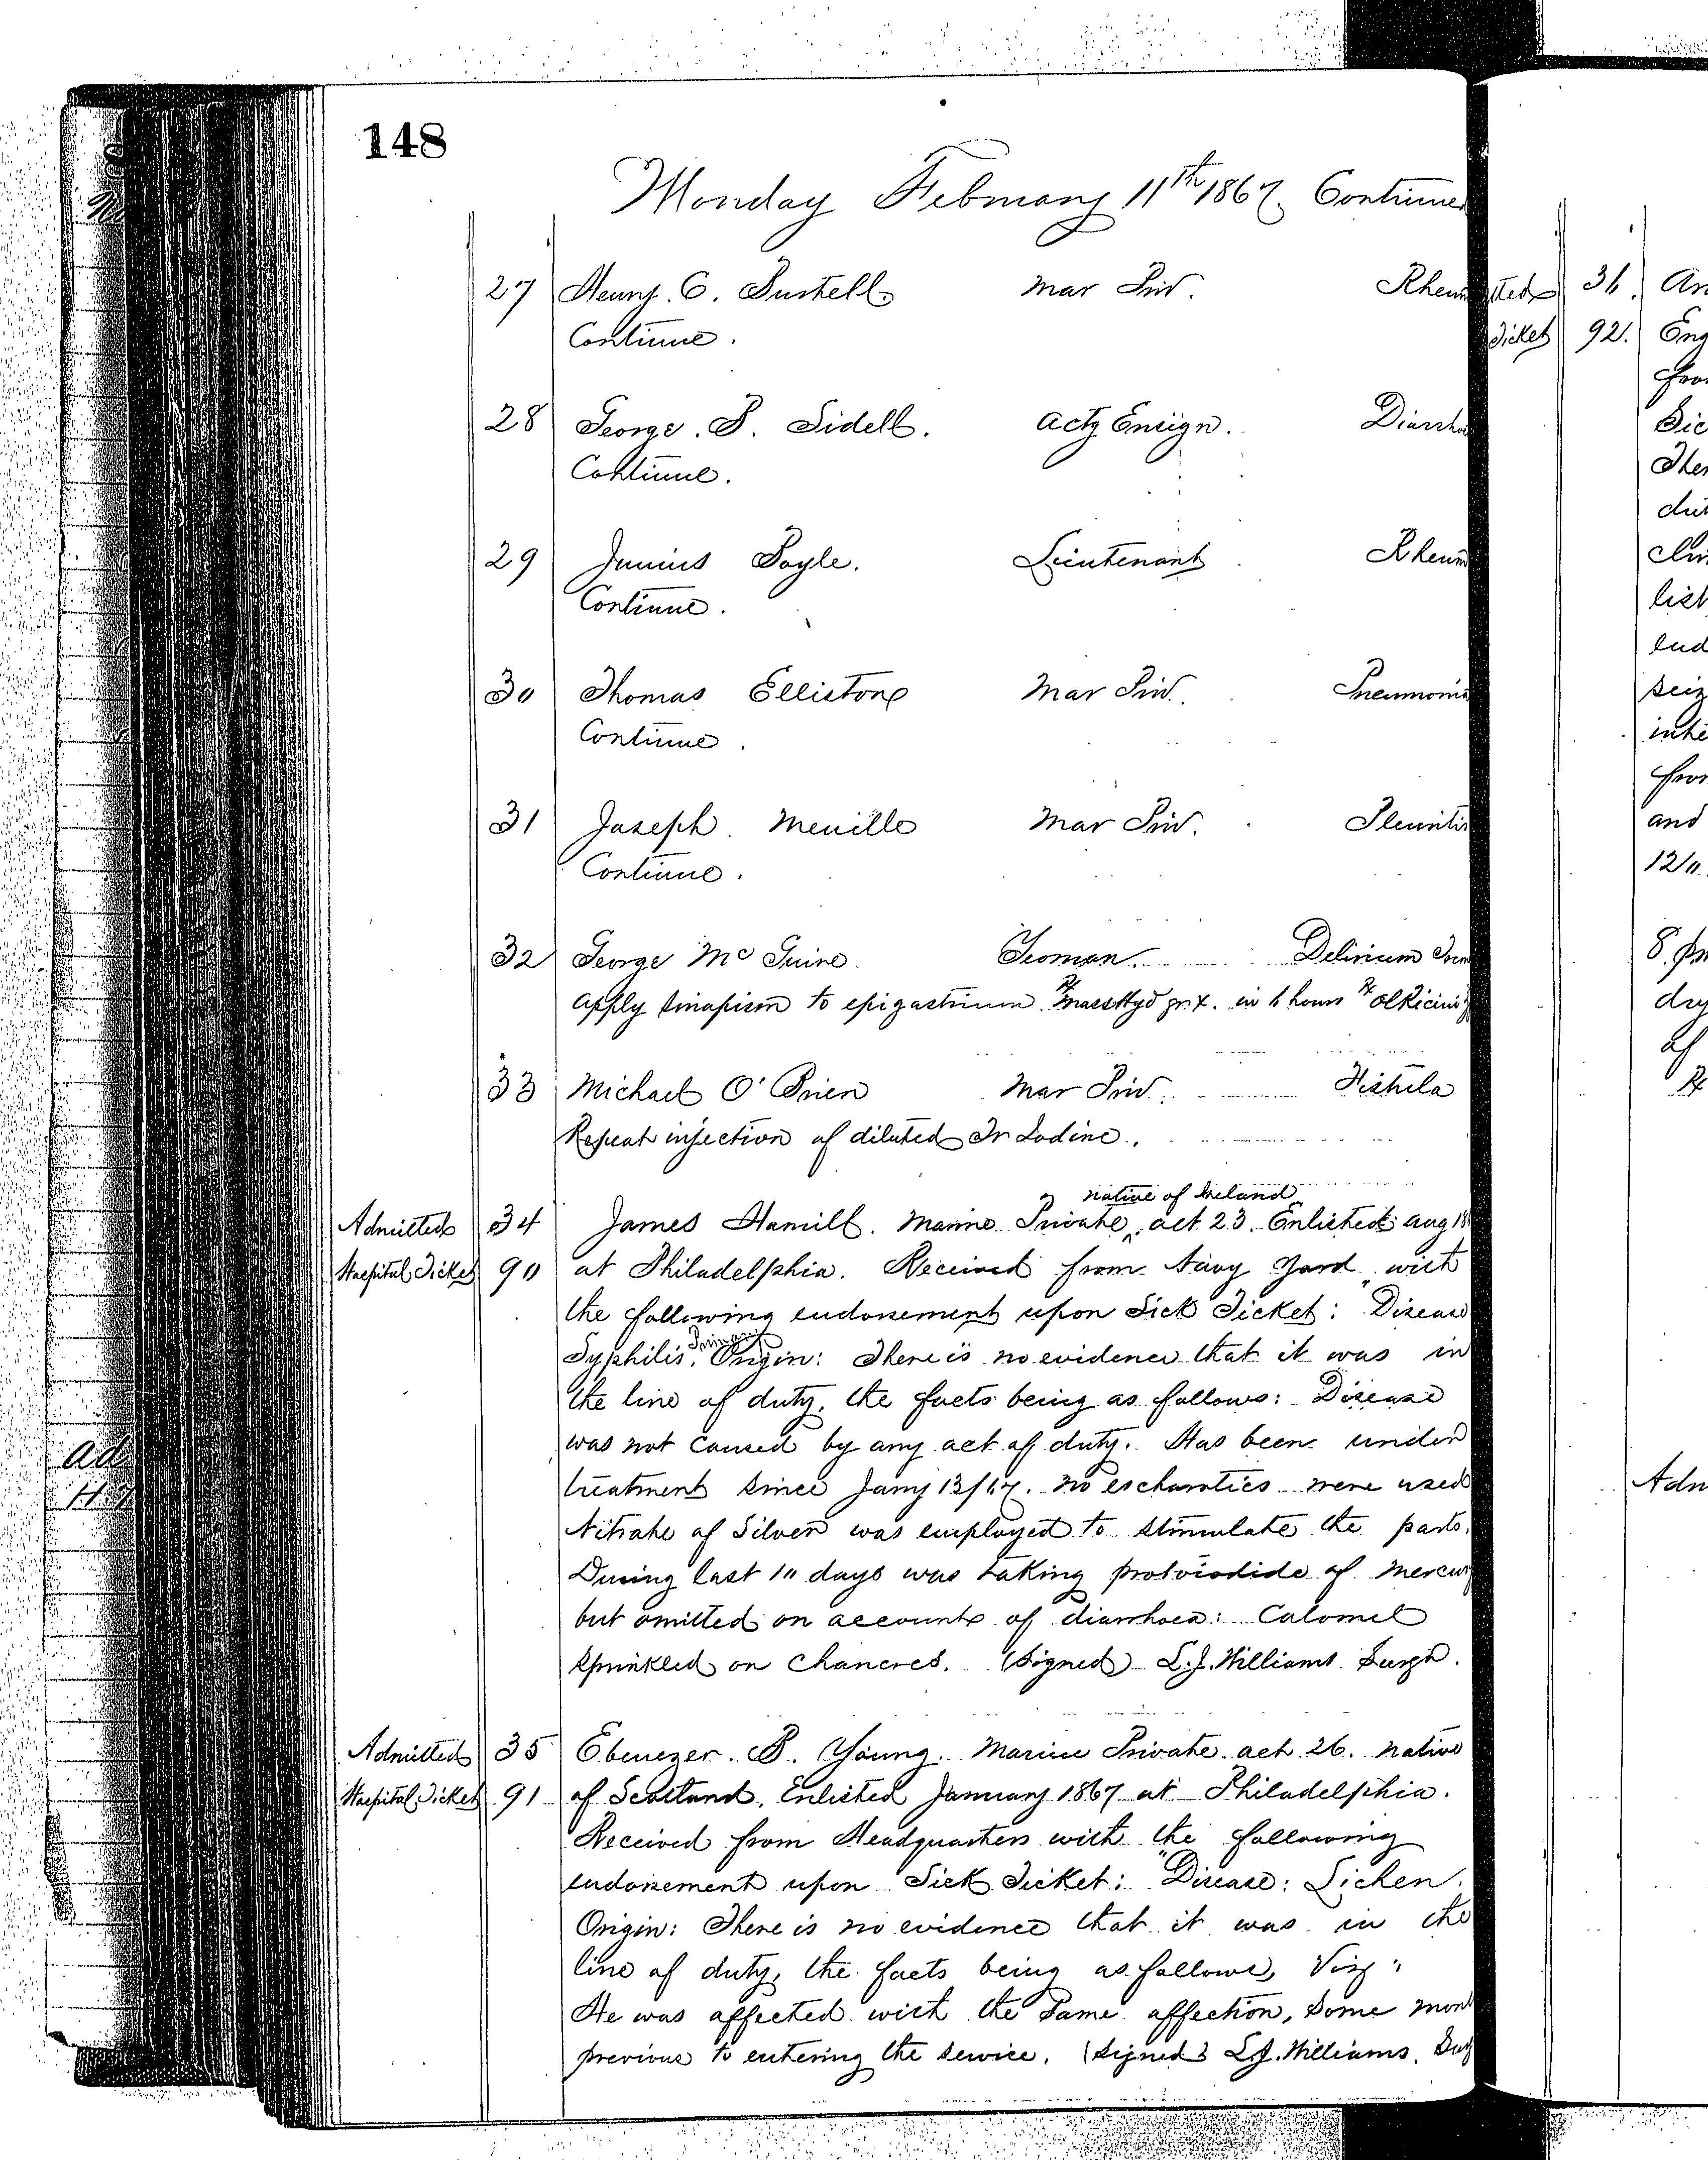 148
Monday February 11th 1867. Continued
27 Henry C. Bustell Mar Priv. Rheum
Continue.
28 George. P. Sidell. Actg Ensign. Diarrho
Continue.
29 Junius Boyle. Lieutenant Rheum
Continue.
30 Thomas Ellistone Mar Priv. Pneumonia
Continue.
31 Joseph Meville Mar Priv. Pleuritis
Continue.
32 George Mc Guire Yeoman. Delirium Trem
Apply sinapism to epigastrium ℞ Mass Hyd gr X. in 6 hours ℞ Ol Ricini
33 Michael O'Brien Mar Priv. Fistula
Repeat injection of diluted Tr Iodine.
native of Ireland
Admitted 34 James Hamill. Marine Private, aet 23. Enlisted Aug 18
Hospital Ticket 90 at Philadelphia. Received from Navy Yard with
the following endorsement upon Sick Ticket: "Disease
Syphilis, Primary Origin: There is no evidence that it was in
the line of duty, the facts being as follows: Disease
was not caused by any act of duty. Has been under
treatment since Jany 13/67. No escharotics were used
Nitrate of Silver was employed to stimulate the parts.
During last 10 days was taking protoiodide of mercury
but omitted on account of diarrhoea: Calomel
sprinkled on chancres. (Signed) L.J. Williams Surgn.
Admitted 35 Ebenezer. B. Young. Marine Private aet 26. native
Hospital Ticket 91 of Scotland. Enlisted January 1867 at Philadelphia.
Received from Headquarters with the following
endorsement upon Sick Ticket: "Disease: Lichen.
Origin: There is no evidence that it was in the
line of duty, the facts being as follows, Viz:
He was affected with the same affection, some mont
previous to entering the service. (Signed) L.J. Williams. Sug
ted 36. An
Ticket 92. Eng
from
Sic
Ther
dut
list
end
seiz
from
and
12/0.
dry
of
℞
Adm